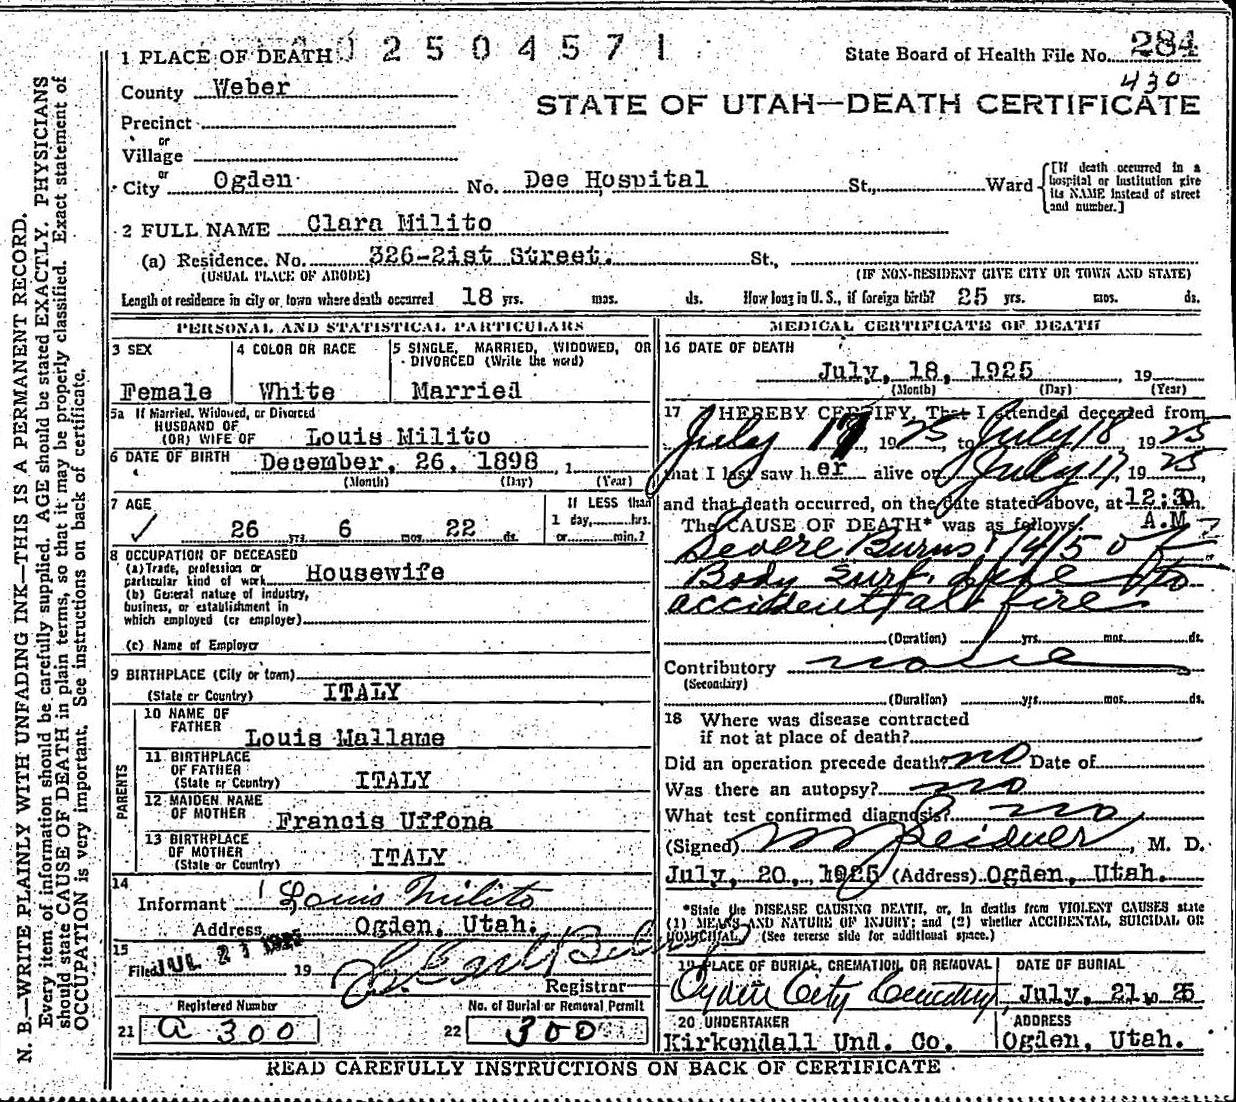 1 PLACE OF DEATH 0 2 5 0 4 5 7 1
State Board of Health File No. 284
430
County Weber
STATE OF UTAH—DEATH CERTIFICATE
Precinct
or
Village
or
City Ogden No. Dee Hospital St., Ward
[If death occurred in a hospital or institution give its NAME instead of street and number.]
2 FULL NAME Clara Milito
(a) Residence. No. 326-21st Street. St.,
(USUAL PLACE OF ABODE) (IF NON-RESIDENT GIVE CITY OR TOWN AND STATE)
Length of residence in city or town where death occurred 18 yrs. mos. ds. How long in U. S., if foreign birth? 25 yrs. mos. ds.
PERSONAL AND STATISTICAL PARTICULARS
3 SEX
Female
4 COLOR OR RACE
White
5 SINGLE, MARRIED, WIDOWED, OR
DIVORCED (Write the word)
Married
5a If Married, Widowed, or Divorced
HUSBAND OF
(OR) WIFE OF Louis Milito
6 DATE OF BIRTH December, 26, 1898, 1
(Month) (Day) (Year)
7 AGE
26 yrs. 6 mos. 22 ds.
If LESS than
1 day, hrs.
or min.?
8 OCCUPATION OF DECEASED
(a) Trade, profession or
particular kind of work Housewife
(b) General nature of industry,
business, or establishment in
which employed (or employer)
(c) Name of Employer
9 BIRTHPLACE (City or town)
(State or Country) ITALY
PARENTS
10 NAME OF
FATHER
Louis Mallame
11 BIRTHPLACE
OF FATHER
(State or Country) ITALY
12 MAIDEN NAME
OF MOTHER
Francis Uffona
13 BIRTHPLACE
OF MOTHER
(State or Country) ITALY
14
Informant Louis Milito
Address Ogden, Utah.
15
Filed JUL 21 1925 19
Registrar
Registered Number
21 a 300
No. of Burial or Removal Permit
22 300
MEDICAL CERTIFICATE OF DEATH
16 DATE OF DEATH
July, 18, 1925, 19
(Month) (Day) (Year)
17 I HEREBY CERTIFY, That I attended deceased from
July 17 1925, to July 18, 1925
that I last saw her alive on July 17, 1925,
and that death occurred, on the date stated above, at 12:30 m.
A.M
The CAUSE OF DEATH* was as follows:
Severe Burns 4/5 of
Body surf. due to
accidental fire
(Duration) yrs. mos. ds.
Contributory none
(Secondary)
(Duration) yrs. mos. ds.
18 Where was disease contracted
if not at place of death?
Did an operation precede death? no Date of
Was there an autopsy? no
What test confirmed diagnosis? no
(Signed) , M. D.
July, 20, 1925 (Address) Ogden, Utah.
*State the DISEASE CAUSING DEATH, or, in deaths from VIOLENT CAUSES state
(1) MEANS AND NATURE OF INJURY; and (2) whether ACCIDENTAL, SUICIDAL OR
HOMICIDAL. (See reverse side for additional space.)
19 PLACE OF BURIAL, CREMATION, OR REMOVAL
Ogden City Cemetery
DATE OF BURIAL
July, 21, 19 25
20 UNDERTAKER
Kirkendall Und. Co.
ADDRESS
Ogden, Utah.
READ CAREFULLY INSTRUCTIONS ON BACK OF CERTIFICATE
N. B.—WRITE PLAINLY WITH UNFADING INK—THIS IS A PERMANENT RECORD.
Every item of information should be carefully supplied. AGE should be stated EXACTLY. PHYSICIANS
should state CAUSE OF DEATH in plain terms, so that it may be properly classified. Exact statement of
OCCUPATION is very important. See instructions on back of certificate.